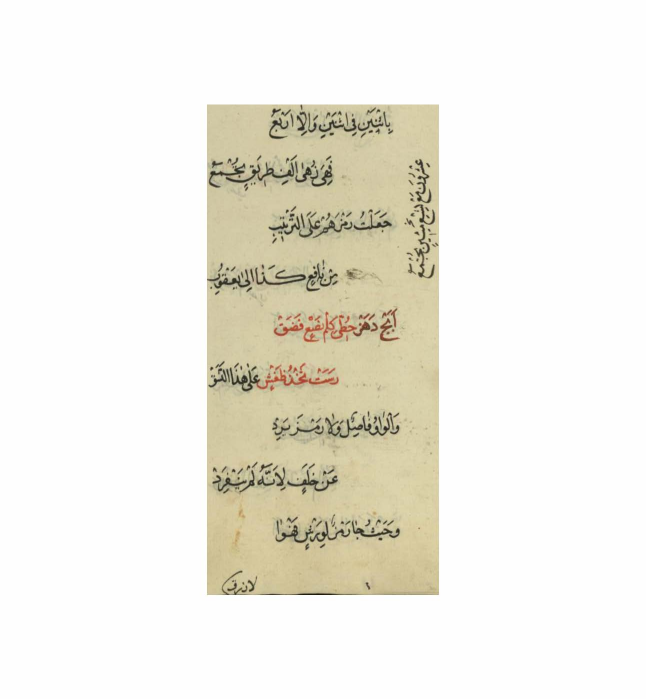 بِاثْنَيْنِ فِى اثْنَيْنِ وَاِلَّا اَرْبَعُ
فَهْىَ زُهٰى اَلْفِ طَرِيْقٍ تُجْمَعُ
جَعَلْتُ رَمْزَهُمْ عَلَى التَّرْتِيْبِ
مِنْ نَافِعٍ كَذَا اِلٰى يَعْقُوْبِ
اَبَجْ دَهَزْ حُطِّى كَلَمْ نَصَعْ فَضَقْ
رَسَتْ ثَخَذْ ظَغَشْ عَلٰى هٰذَا النَّسَقْ
وَالْوَاوُ فَاصِلٌ وَلَا رَمْزَ يَرِدْ
عَنْ خَلَفٍ لِاَنَّهُ لَمْ يَنْفَرِدْ
وَحَيْثُ جَا رَمْزٌ لِوَرْشٍ فَهْوَا
لازرق
عشرون مع